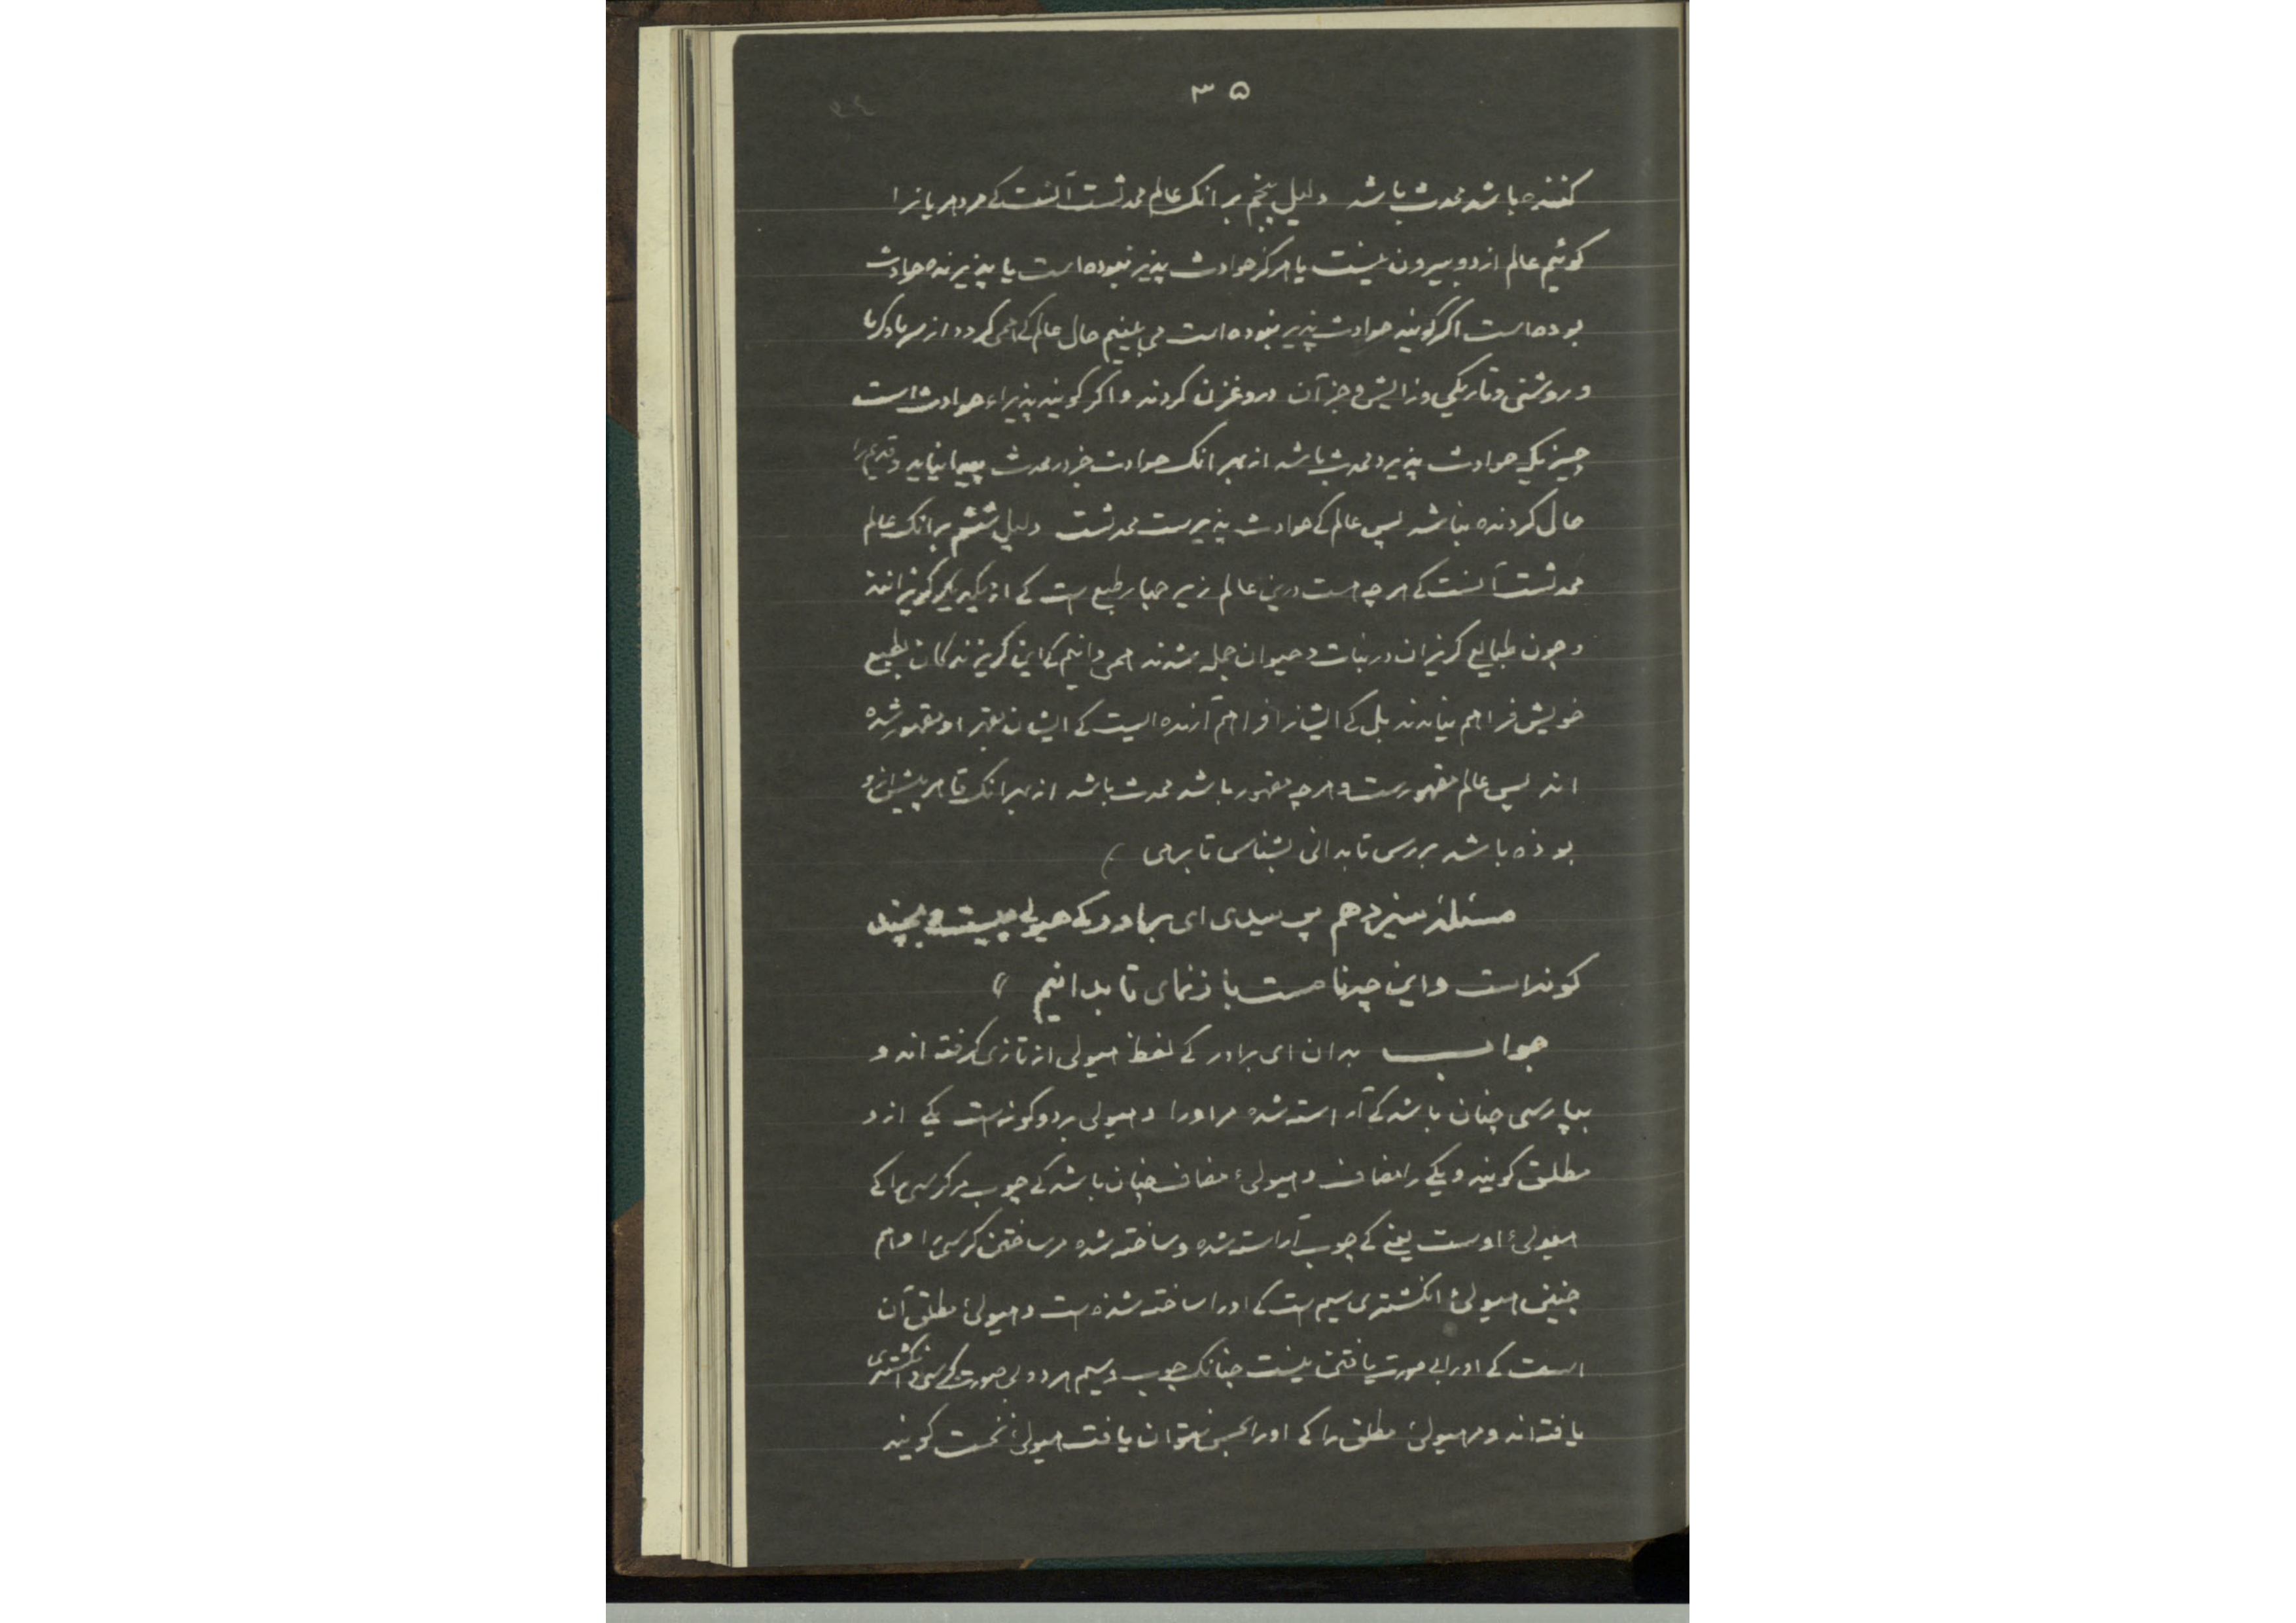 ۳۵
کننده باشد محدث باشد دلیل پنجم بر انک عالم محدثست آنست کی مر دهریانرا
کوئیم عالم از دو بیرون نیست یا هرکز حوادث پذیر نبوده است یا پذیرنده حوادث
بوده است اکر کویند حوادث پذیر نبوده است می بینیم حال عالم کی همی کردد از سرما و کرما
و روشنی و تاریکی و زایش و جز آن دروغزن کردند و اکر کویند پذیراء حوادث است
چیزیکی حوادث پذیرد محدث باشد از بهر انک حوادث جز در محدث پیدا نیاید و قدیم را
حال کردنده نباشد پس عالم کی حوادث پذیرست محدثست دلیل ششم بر انک عالم
محدثست آنست کی هر چه هست درین عالم زیر چهار طبع است کی از یکدیکر کریزانند
و چون طبایع کریزان در نبات و حیوان جمله شدند همی دانیم کی این کریزندکان بطبع
خویش فراهم نیامدند بل کی ایشانرا فراهم آرنده ایست کی ایشان بقهر او مقهور شده
اند پس عالم مقهورست و هر چه مقهور باشد محدث باشد از بهر انک قاهر پیش از و
بوذه باشد بررس تا بدانی بشناس تا برهی
مسئلهٔ سیزدهم پرسیدی ای برادر کی هیولی چیست و بچند
کونه است و این چرنا هست بازنمای تا بدانیم
جواب بدان ای برادر کی لفظ هیولی از تازی کرفته اند و
بپارسی چنان باشد کی آراسته شده مر اورا و هیولی بر دو کونه است یکی ازو
مطلق کویند و یکی را مضاف و هیولیٔ مضاف چنان باشد کی چوب مر کرسی را کی
هیولیٔ اوست یعنی کی چوب آراسته شده و ساخته شده مر ساختن کرسی را و هم
چنین هیولیٔ انکشتری سیم است کی اورا ساخته شذه است و هیولیٔ مطلق آن
است کی اورا بی صورت یافتن نیست چنانک چوب و سیم هر دو بی صورت کرسی و انکشتری
یافته اند و مر هیولیٔ مطلق را کی اورا بحس نتوان یافت هیولیٔ نخست کویند